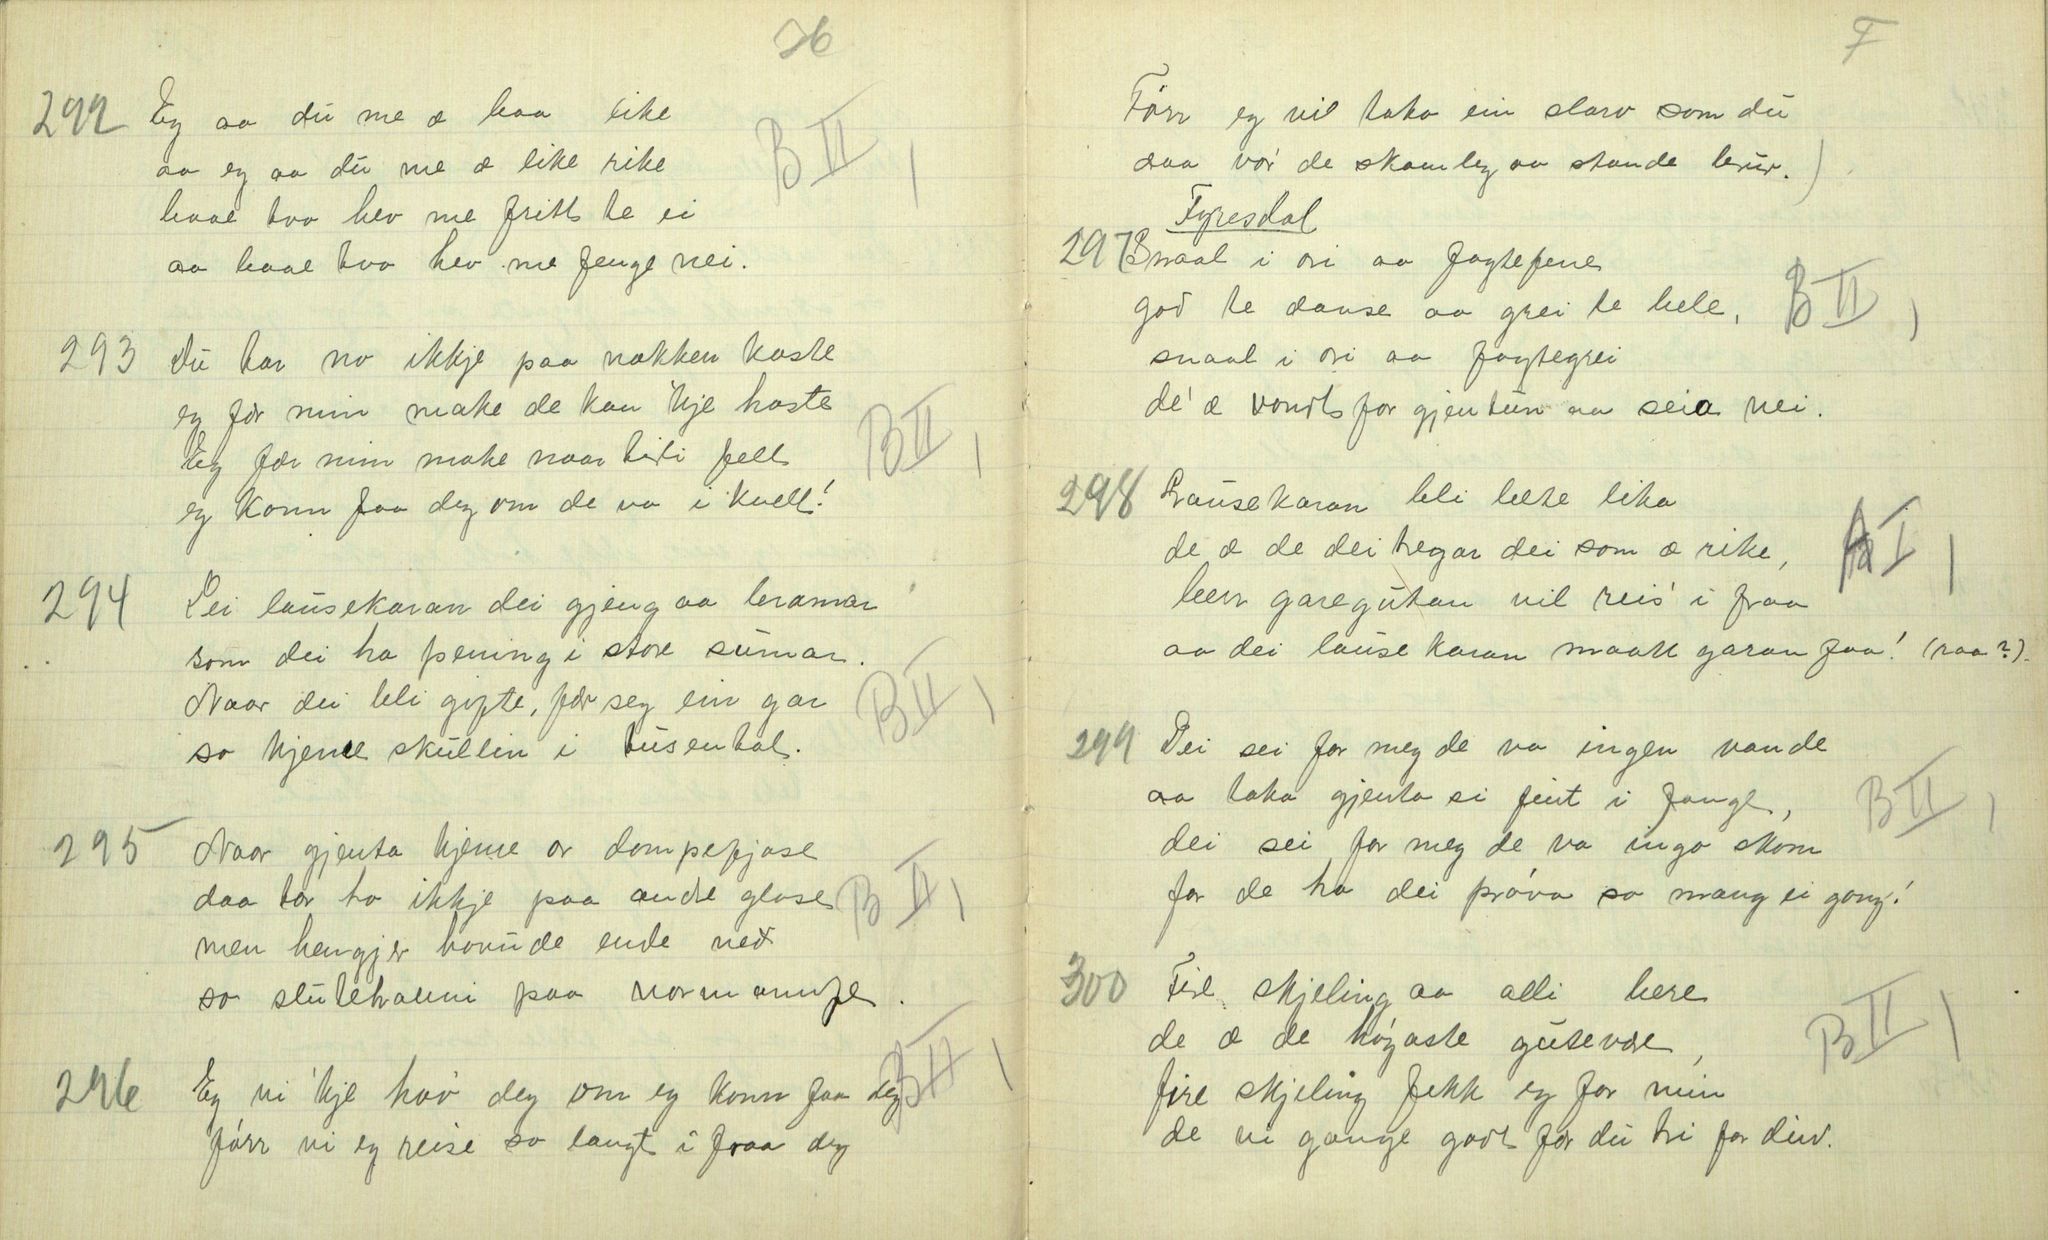 H
292 Eg aa du me æ baa like
aa eg aa du me æ like rike
baae tvo hev me fritt te ei
aa baae tvo hev me fenge nei.
B II
293 Du tar no ikkje paa nakken kaste
eg fær min make de kan 'kje haste
Eg fær min make naar tidi fell
eg konn faa deg om de va i kvell!
B II
294 Dei lausekaran dei gjeng aa bramar
som dei ha pening i store sumar.
Naar dei bli gifte, fær seg ein gar
so kjeme skullin i tusental.
B II
295 Naar gjenta kjeme or dompefjose
daa tar ho ikkje paa andre glose
men hengjer hovude ende ned
so slutetraani paa
B II
296 Eg vi 'kje hav' deg om eg konn faa deg
fórr vi eg reise so langt i fraa deg
B II
F
Fórr eg vil taka ein slarv som du
daa vór de skamleg aa stande brur.)
Fyresdal
297 Snaal i ori aa fagtefene
god te danse aa grei te bele,
snaal i ori aa fagtegrei
de' æ vondt for gjentun aa seia nei.
B II
298 Lausekaran bli bete lika
de æ de dei tregar dei som æ rike,
berr garegutan vil reis' i fraa
aa dei lausekaran maatt garan faa! (raa?).
A I
299 Dei sei for meg de va ingen vande
aa taka gjenta si fint i fange,
dei sei for meg de va inga skam
for de ha dei próva so mang ei gong!
B II
300 Fire skjeling aa alli bere
de æ de høgaste gutevære,
fire skjeling fekk eg for min
de vi gange godt før du tri for din.
B II